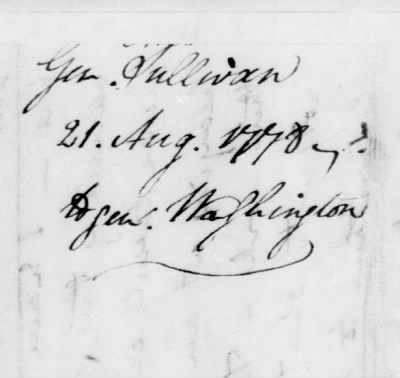 Gen. Sullivan
21. Aug. 1778
to gen. Washington